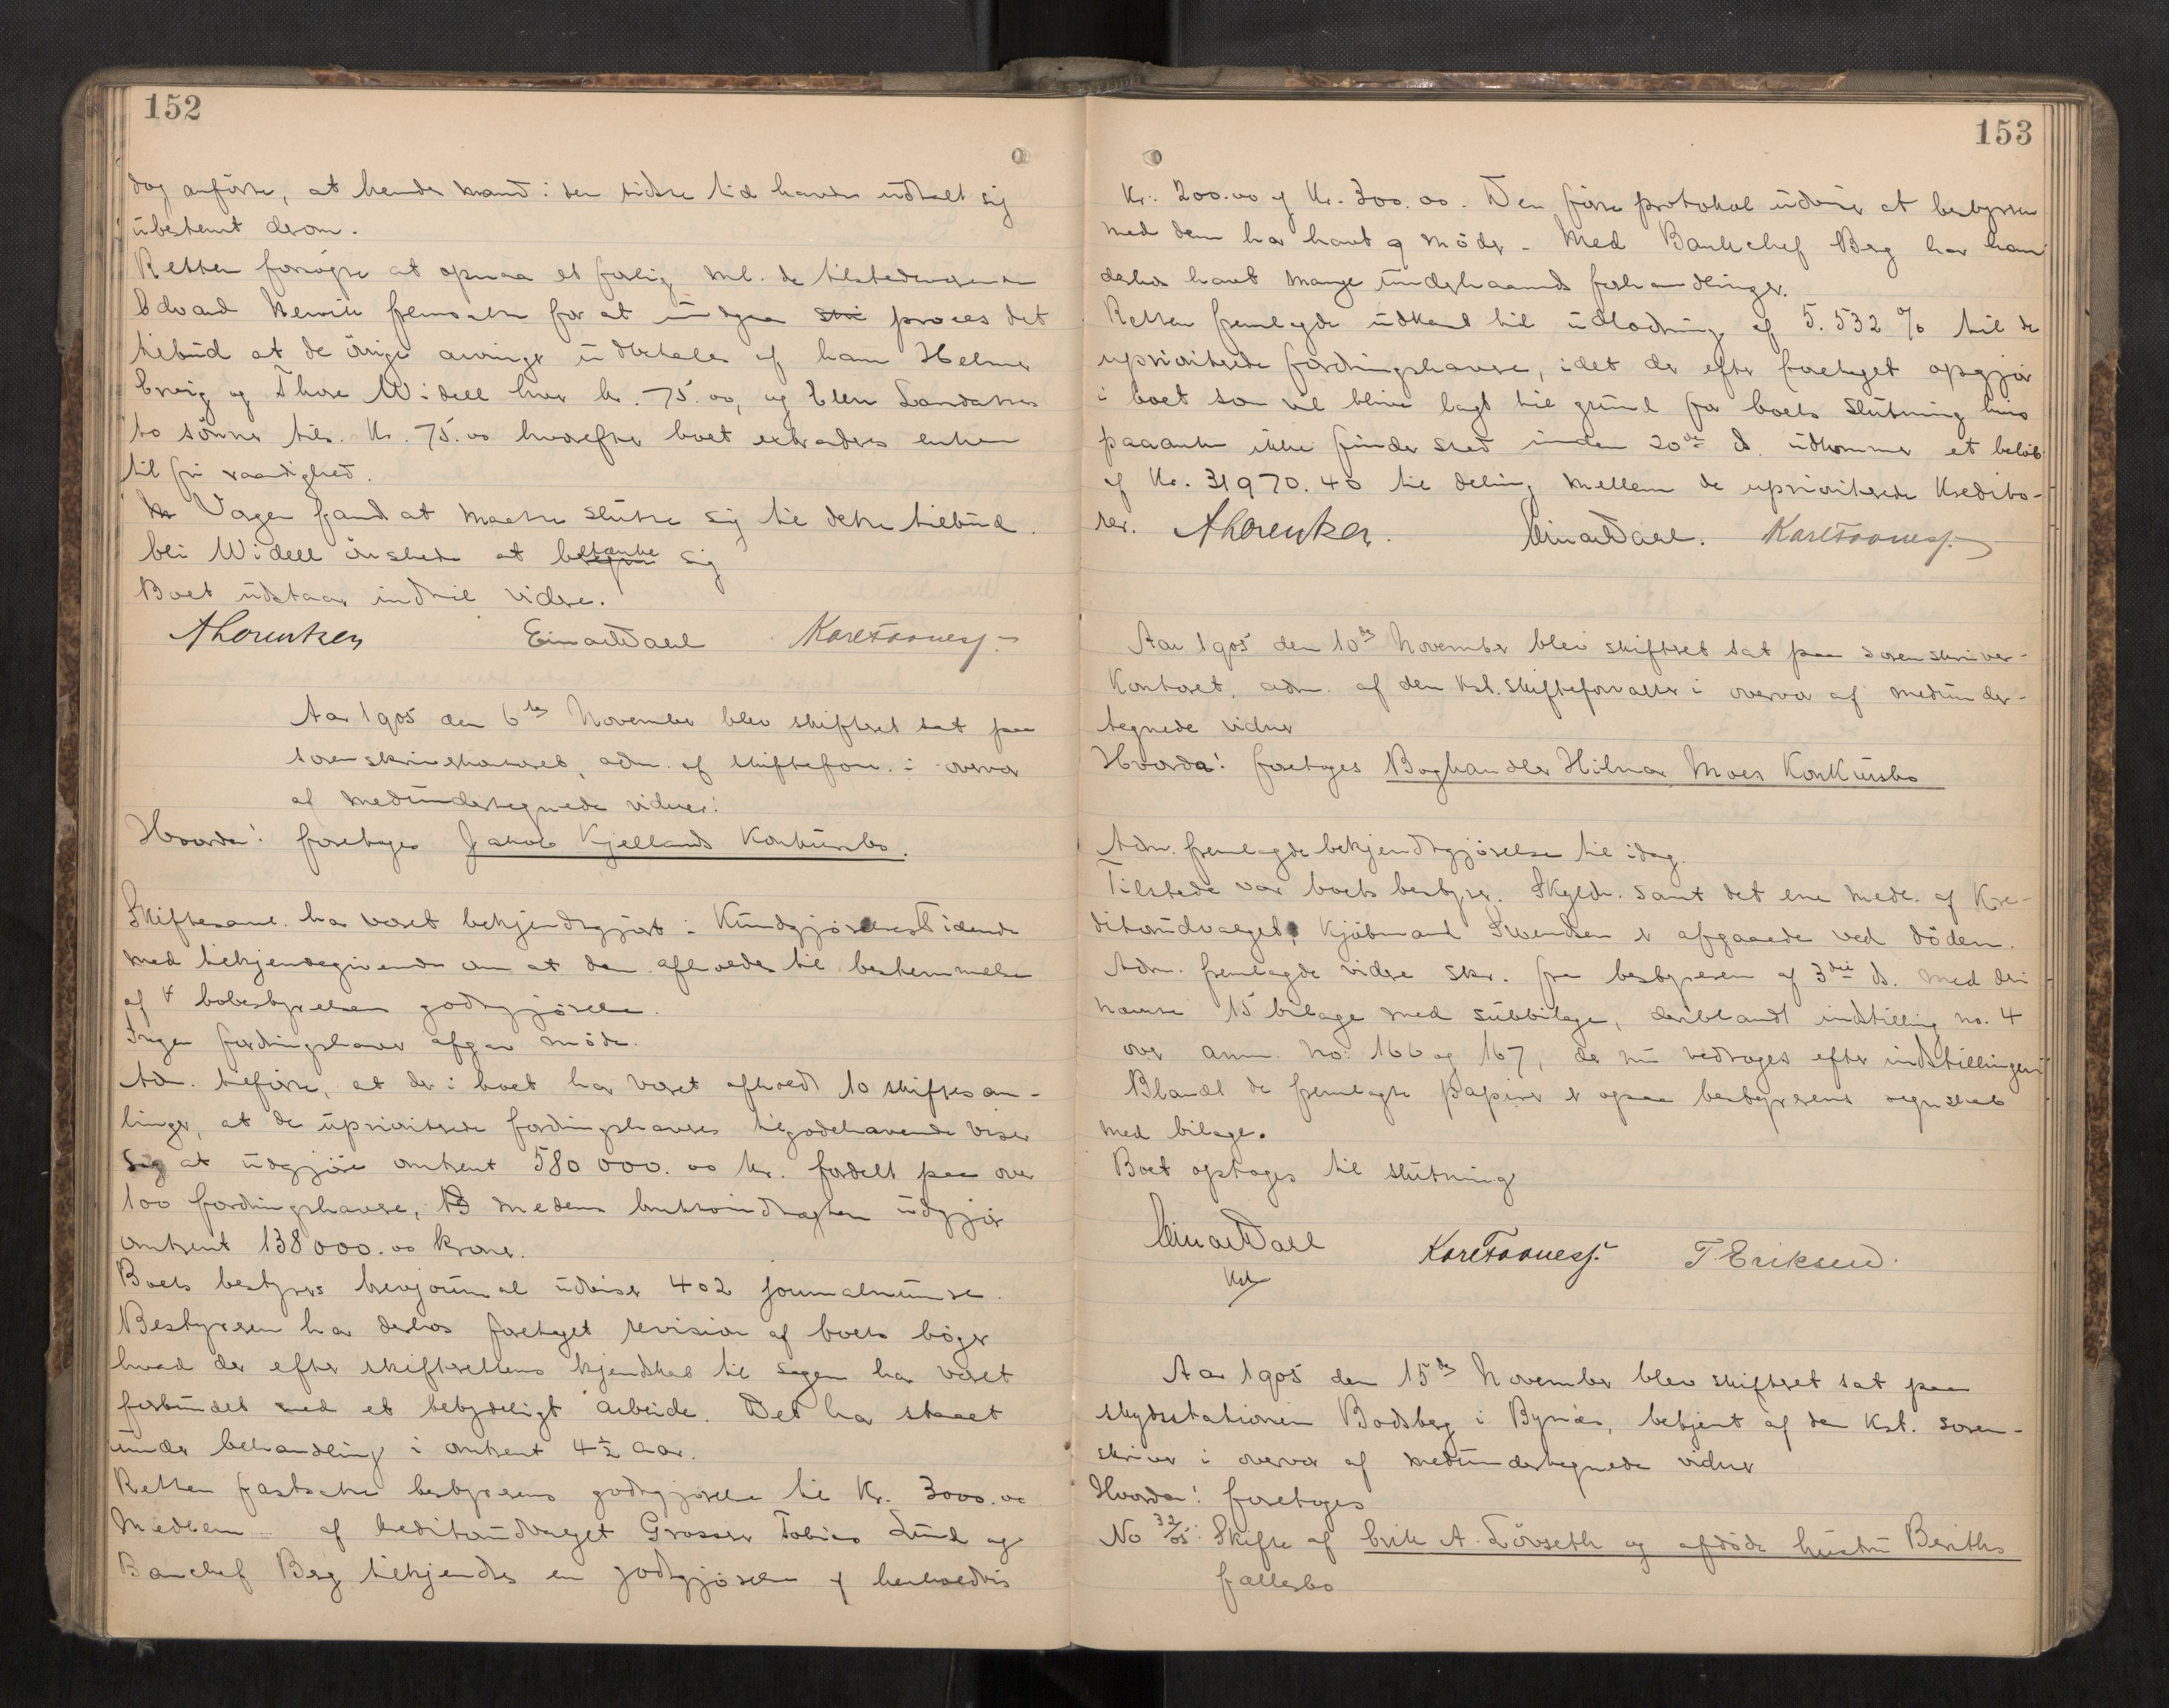 152
dog anførte, at hendes mand i den sidste tid havde udtalt sig
ubestemt derom.
Retten forsøgte at opnaa et forlig ml. de tilstedeværende
Edvard fremsatte for at undgaa proces det
tilbud at de øvrige arvinger udbetales af ham Helmer
og Thore Widell hver kr. 75.00, og Ellen Sandaknes
to sønner tils. Kr. 75.00 hvorefter boet extraderes enken
til fri raadighed.
Vergen fandt at maatte slutte sig til dette tilbud.
Eli Widell ønskede at betænke sig
Boet udstaar indtil videre.
A Lorentzen Einar Dahl Karl Foosnæs
Aar 1905 den 6te November blev skifteret sat paa
sorenskriverkontoret, adm. af skifteforv. i overvær
af medundertegnede vidner:
Hvorda: foretoges Jakob Kjellands Konkursbo.
Skiftesaml. har været bekjendtgjort i KundgjørelsesTidende
med tilkjendegivende om at den afholdes til bestemmelse
af bobestyrelsens godtgjørelse.
Ingen fordringshaver afgav møde.
Adm. tilførte, at der i boet har været afholdt 10 skiftesam-
linger, at de uprioriterede fordringshaveres tilgodehavende viser
sig at udgjøre omtrent 580 000.00 kr. fordelt paa over
100 fordringshavere, medens bruttoindtægten udgjør
omtrent 138 000.00 kroner.
Boets bestyrers brevjournal udviser 402 journalnumre.
Bestyreren har derhos foretaget revision af boets bøger
hvad der efter skifterettens kjendskab til sagen har været
forbundet med et betydeligt arbeide. Det har staaet
under behandling i omtrent 4½ aar.
Retten fastsatte bestyrerens godtgjørelse til Kr. 3000.00
Medlem af kreditorudvalget Grosserer Tobias Lund og
Bankchef Berg tilkjendtes en godtgjørelse af henholdsvis
153
Kr. 200.00 og Kr. 300.00. Den førte protokol udviser at bestyreren
med dem har havt 9 møder - Med Bankchef Berg har han
derhos havt mange underhaands forhandlinger.
Retten fremlagde udkast til udlodning af 5.532 % til de
uprioriterede fordringshavere, idet der efter foretaget opgjør
i boet som vil blive lagt til grund for boets slutning hvis
paaanke ikke finder sted inden 20de ds. udkommer et beløb
af Kr. 31970.40 til deling mellem de uprioriterede Kredito-
rer. A Lorentzen. Einar Dahl. Karl Foosnæs
Aar 1905 den 10de November blev skifteret sat paa sorenskriver-
Kontoret, adm. af den Kst. skifteforvalter i overvær af medunder-
tegnede vidner
Hvorda: foretoges Boghandler Hilmar Moes Konkursbo
Adm. fremlagde bekjendtgjørelse til idag.
Tilstede var boets bestyrer. Skyldn. samt det ene medl. af Kre-
ditorudvalget, Kjøbmand Svendsen er afgaaede ved døden.
Adm. fremlagde videre skr. fra bestyreren af 3die ds. med deri
nævnte 15 bilage med subbilage, deriblandt indstilling no. 4
over anm. no: 166 og 167, der nu vedtoges efter indstillingen
Blandt de fremlagte papirer er ogsaa bestyrerens regnskab
med bilage.
Boet optages til slutning
Einar Dahl Karl Foosnæs T. Eriksen.
Kst
Aar 1905 den 15de November blev skifteret sat paa
skydsstationen Bodsberg i Bynæs, betjent af den Kst. soren-
skriver i overvær af medundertegnede vidner
Hvorda: foretoges
No 32/05: Skifte af Erik A. Løvseth og afdøde hustru Beriths
fællesbo